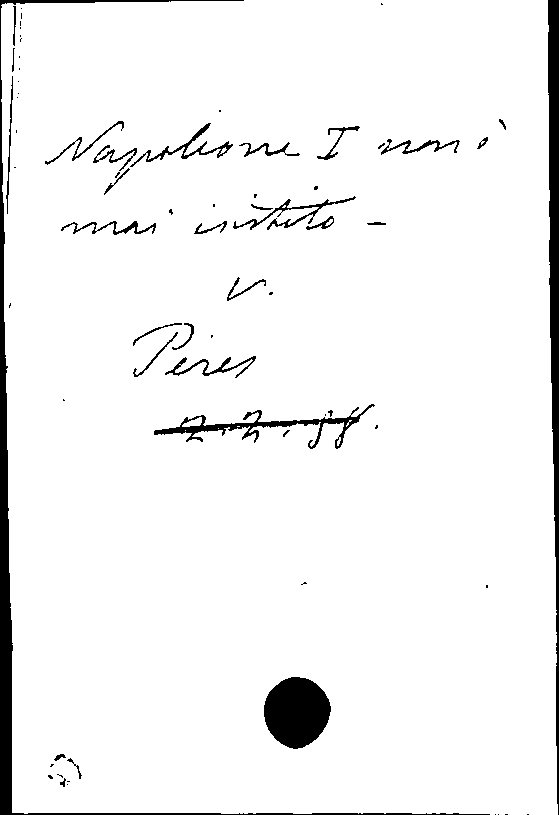 Napoleone I non è
mai esistito -
v.
Pérès